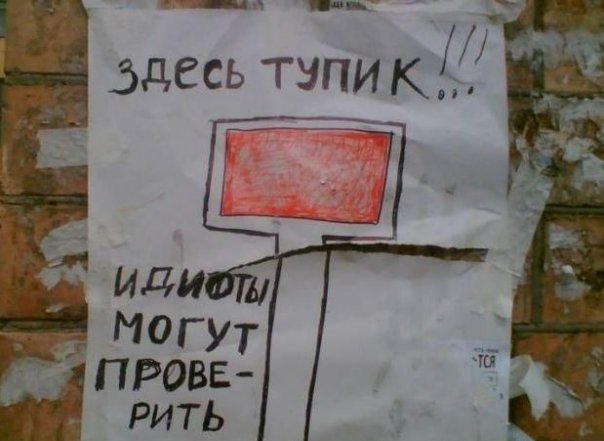 ЗДЕСЬ ТУПИК!!!
ИДИОТЫ
МОГУТ
ПРОВЕ-
РИТЬ
-ТСЯ